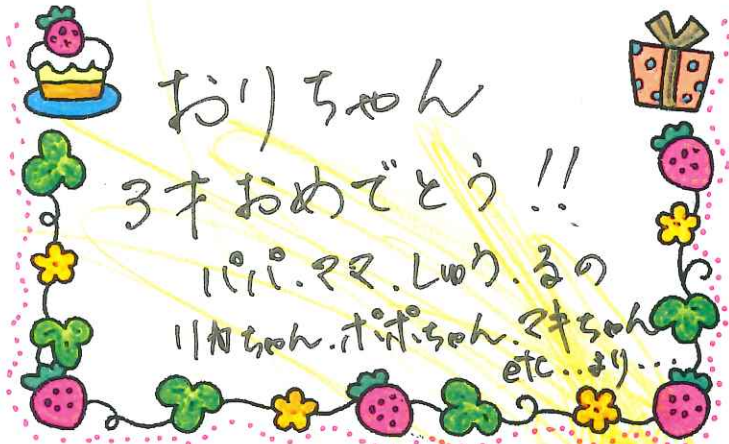 おりちゃん
3才おめでとう!!
パパ.ママ.しゅう.るの
リカちゃん.ポポちゃん.マキちゃん
etc...より...